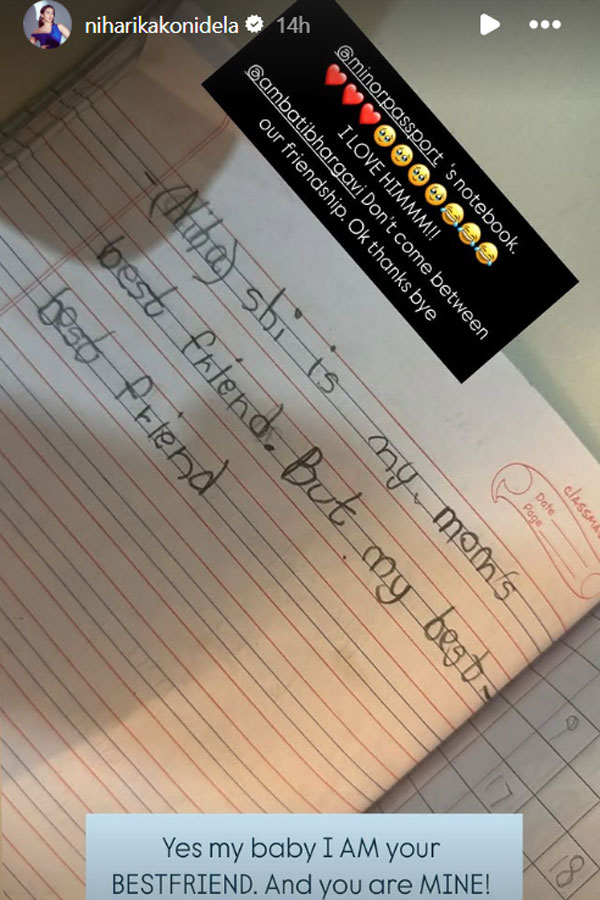 niharikakonidela 14h
@minorpassport 's notebook.
❤️❤️❤️🥹🥹🥹🥹😂😂😂
I LOVE HIMMM!!
@ambatibhargavi Don't come between
our friendship. Ok thanks bye
-(Niha) shi is my mom's
best friend. But my best-
best friend
classma
Date
Page
17
18
Yes my baby I AM your
BESTFRIEND. And you are MINE!